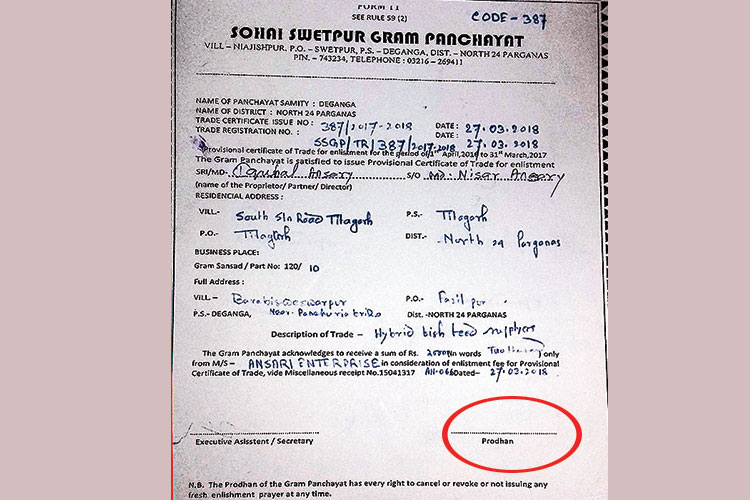 FORM 11
SEE RULE 59 (2)
CODE-387
SOHAI SWETPUR GRAM PANCHAYAT
VILL – NIAJISHPUR, P.O. – SWETPUR, P.S. – DEGANGA, DIST. – NORTH 24 PARGANAS
PIN. – 743234, TELEPHONE : 03216 - 269411
NAME OF PANCHAYAT SAMITY : DEGANGA
NAME OF DISTRICT : NORTH 24 PARGANAS
TRADE CERTIFICATE ISSUE NO : 387/2017-2018 DATE : 27.03.2018
TRADE REGISTRATION NO. : SSGP/TR/387/2017-2018 DATE : 27.03.2018
Provisional certificate of Trade for enlistment for the period of 1st April,2016 to 31st March,2017
The Gram Panchayat is satisfied to issue Provisional Certificate of Trade for enlistment
SRI/MD- Iqubal Ansary S/O MD. Nisar Ansary
(name of the Proprietor/ Partner/ Director)
RESIDENCIAL ADDRESS :
VILL.- South Sln Road Titagarh P.S.- Titagarh
P.O.- Titagarh DIST.- North 24 Parganas
BUSINESS PLACE:
Gram Sansad / Part No: 120/ 10
Full Address :
VILL – P.O.- Fazilpur
P.S.- DEGANGA, Dist. -NORTH 24 PARGANAS
Description of Trade – Hybrid fish feed suppliers
The Gram Panchayat acknowledges to receive a sum of Rs. 2000 in words only
from M/S – ANSARI ENTERPRISE in consideration of enlistment fee for Provisional
Certificate of Trade, vide Miscellaneous receipt No.15041317 Dated- 27.03.2018
Executive Asisstent / Secretary
Prodhan
N.B. The Prodhan of the Gram Panchayat has every right to cancel or revoke or not issuing any
fresh enlishment prayer at any time.